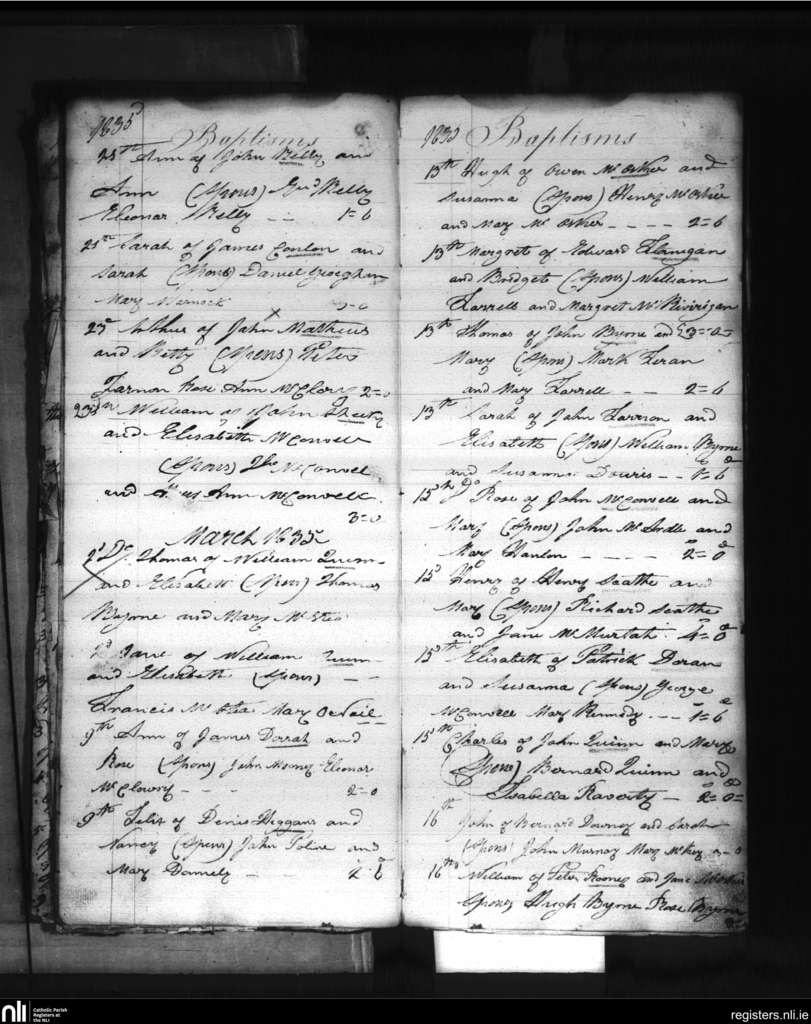 1835
Baptisms
25th Ann of John Kelly and
Ann (Spons) Kelly
Eleonar Kelly - - 1=6
Sarah of James Conlon and
Sarah (Spons) Daniel Geoighan
Mary Warnock
23d Arthur of John Matheus
and Betty (Spons) Peter
Farnon Rose Ann McClory 2=0
William of John Sheety
and Elisabeth McConvell
(Spons) McConvell
and Ann McConvell.
3=0
March 1835
Thomas of William Quinn
and Elisabeth (Spons) Thomas
Byrne and Mary
Jane of William Quinn
and Elisabeth (Spons) - -
Francis Mary O'Neil
9th Ann of James Dorrah and
Rose (Spons) John Mooney Eleonar
McClowry - - - 2=0
9th Felix of Denis Higgans and
Nancy (Spons) John and
Mary Donnely - - 2=6
Baptisms
13th Hugh of Owen and
Susanna (Spons) Henry
and Mary - - - - 2=6
13th Margret of Edward Flanegan
and Bridget (Spons) William
Farrell and Margret
13th Thomas of John Byrne and 3=0
Mary (Spons) Mark
and Mary Farrell - - 2=6
13th Sarah of John Farnon and
Elisabeth (Spons) William Byrne
and Susanna - - 1=6
15th Rose of John McConvell and
Mary (Spons) John McArdle and
Mary Hanlon - - - - 2=0
15 Henry of Henry Scathe and
Mary (Spons) Richard Scathe
and Jane McMurtah. 4=0
15th Elisabeth of Patrick Doran
and Susanna (Spons) George
McConvell Mary Kennedy. - - 1=6
15th Charles of John Quinn and Mary
(Spons) Bernard Quinn and
Isabella Raverty - 2=0
16th John of Bernard Downey and Sarah
(Spons) John Murnay Mary McKey
16th William of Peter Rooney and Jane
Spons Hugh Byrne Rose Byrne
nli
Catholic Parish
Registers at
the NLI
registers.nli.ie